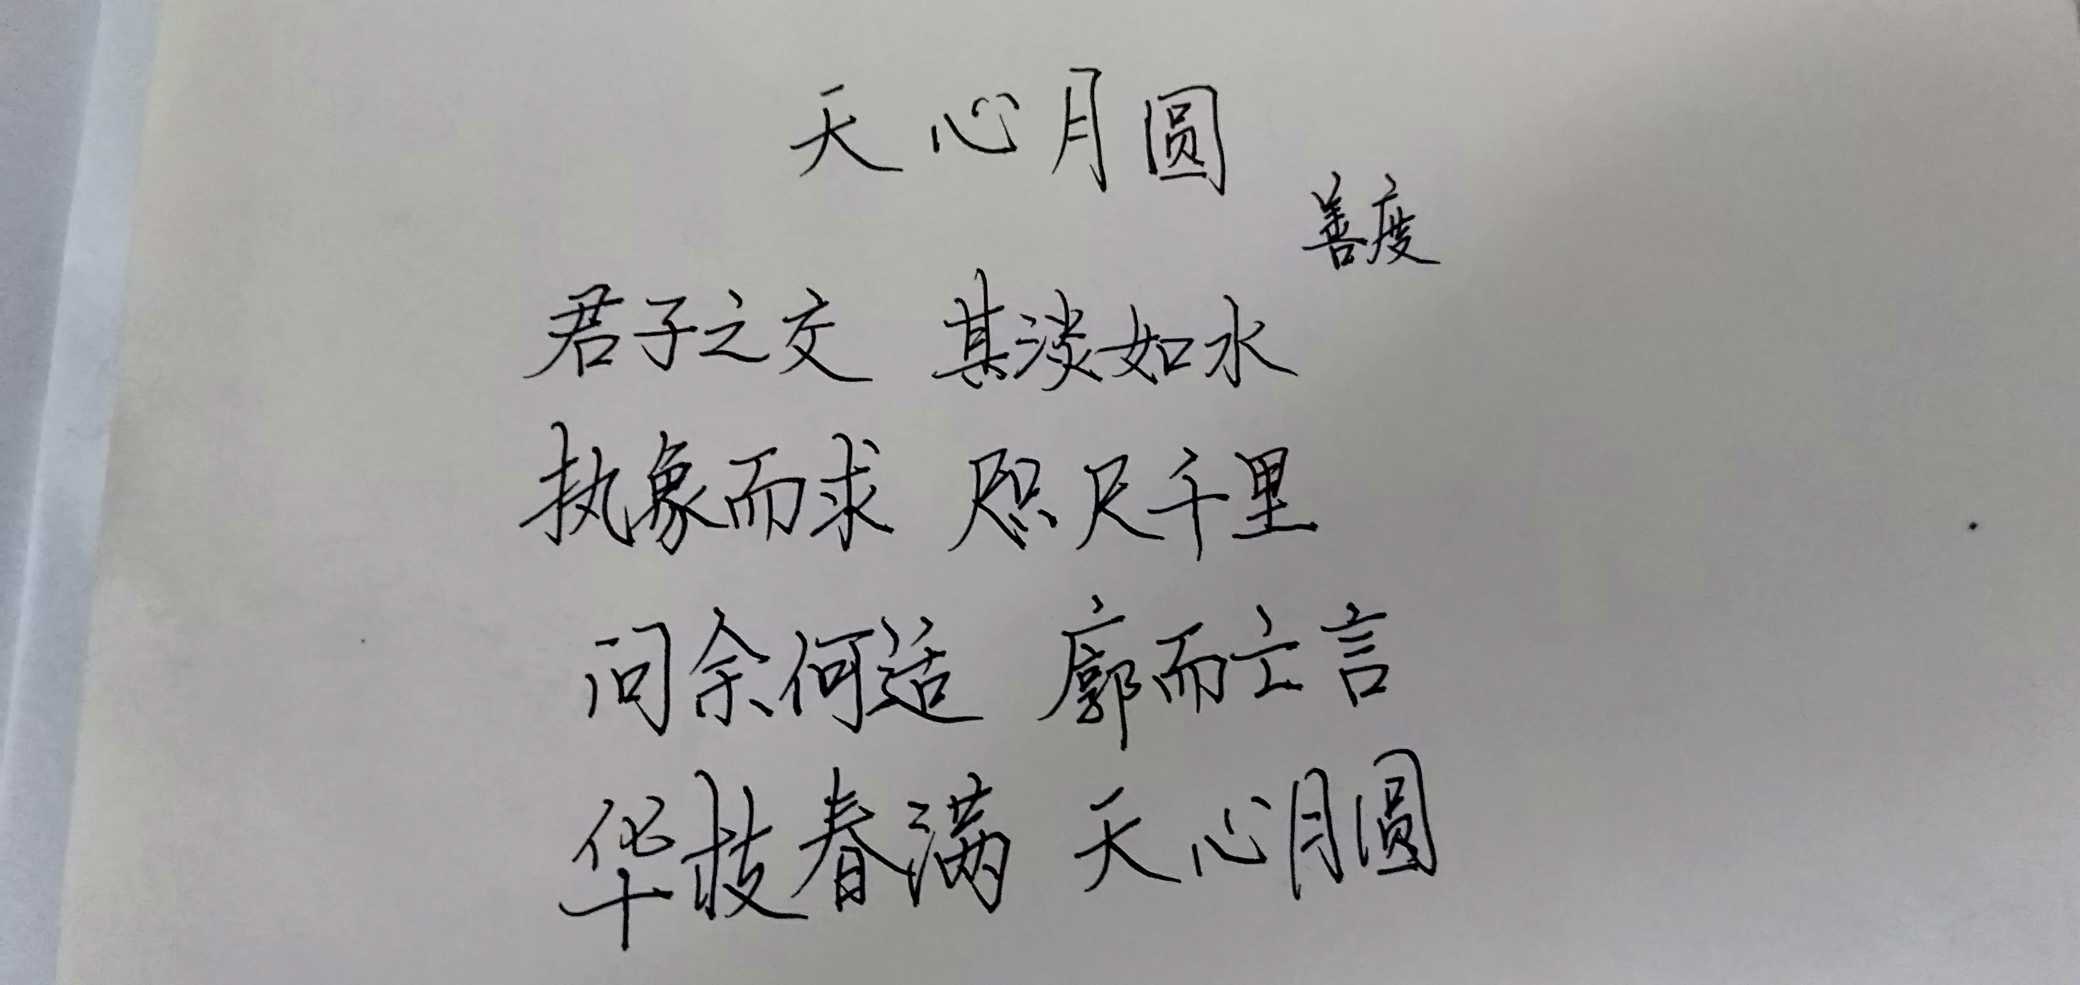 天心月圆
善度
君子之交 其淡如水
执象而求 咫尺千里
问余何适 廓而亡言
华枝春满 天心月圆